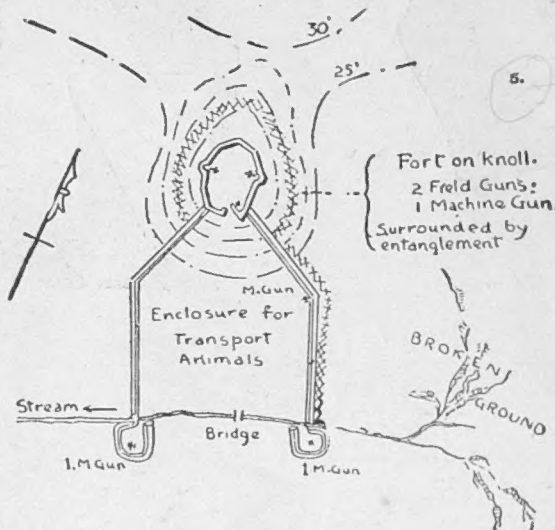 30'
25'
5.
Fort on knoll.
2 Field Guns:
1 Machine Gun
Surrounded by
entanglement
M.Gun
Enclosure for
Transport
Animals
BROKEN
GROUND
Stream
Bridge
1.M Gun
1 M.Gun